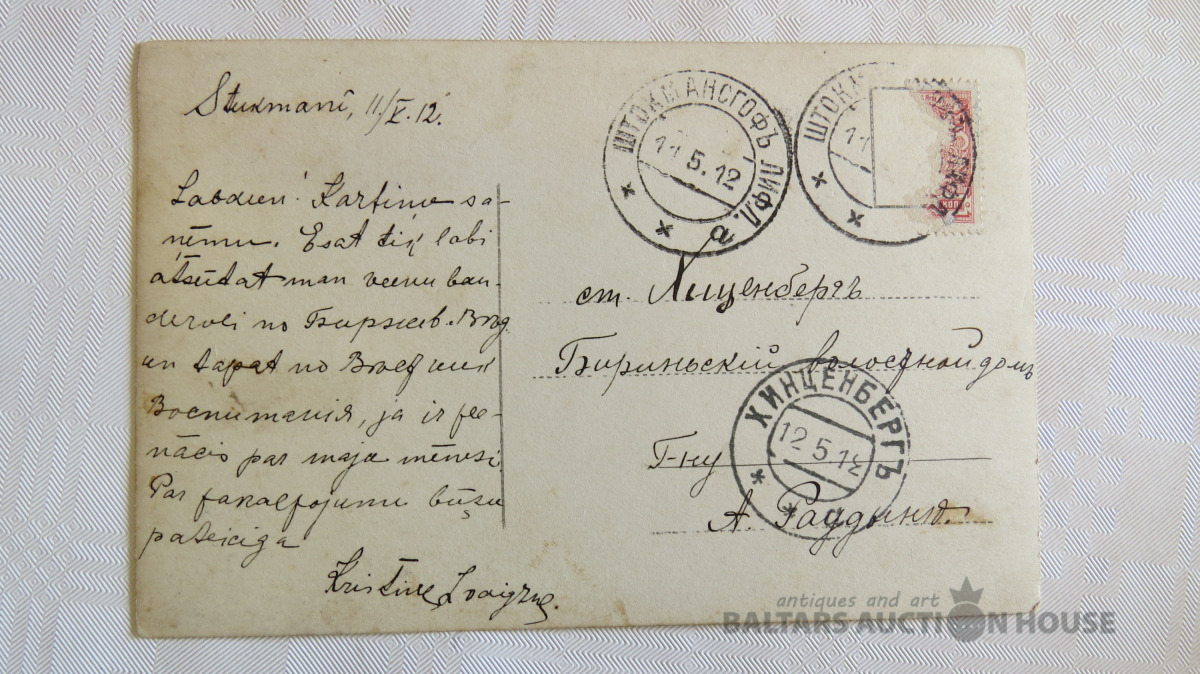 Stukmani, 11/V. 12.
Labdien! Kartiņu sa-
ņēmu. Esat tik labi
atsūtat man vienu ban-
deroli no Биржев.
un tapat no
Воспитанія, ja ir pee-
nācis par maja mēnesi.
Par būšu
pateicīga
Kristine Zvaigzne.
ШТОКМАНСГОФЪ ЛИФЛ.
11.5.12
а
ШТОКМ
11
КОП.
ст. Хиценбергъ
Бириньскій волостной домъ
Г-ну
А. Раудыню.
ХИНЦЕНБЕРГЪ
12 5 12
antiques and art
BALTARS AUCTION HOUSE